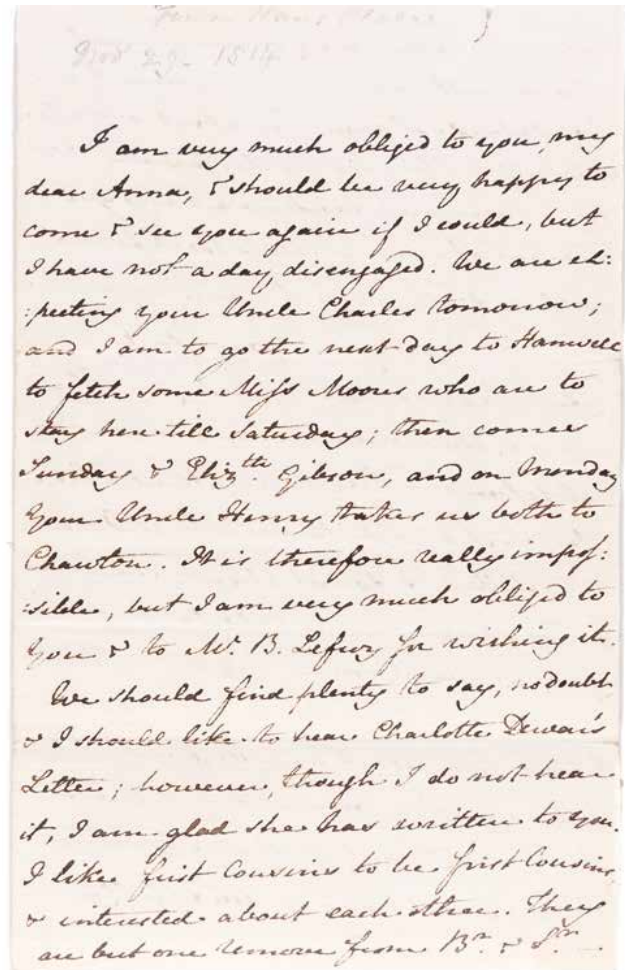 Nov 29. 1814
I am very much obliged to you, my
dear Anna, & should be very happy to
come & see you again if I could, but
I have not a day disengaged. We are ex:
:pecting your Uncle Charles tomorrow;
and I am to go the next day to Hanwell
to fetch some Miss Moores who are to
stay here till Saturday; then comes
Sunday & Eliz.th Gibson, and on Monday
Your Uncle Henry takes us both to
Chawton. It is therefore really impos:
:sible, but I am very much obliged to
You & to Mr. B. Lefroy for wishing it.
We should find plenty to say, no doubt
& I should like to hear Charlotte Dewar's
Letter; however, though I do not hear
it, I am glad she has written to you.
I like first Cousins to be first Cousins,
& interested about each other. They
are but one remove from Br. & Sr.